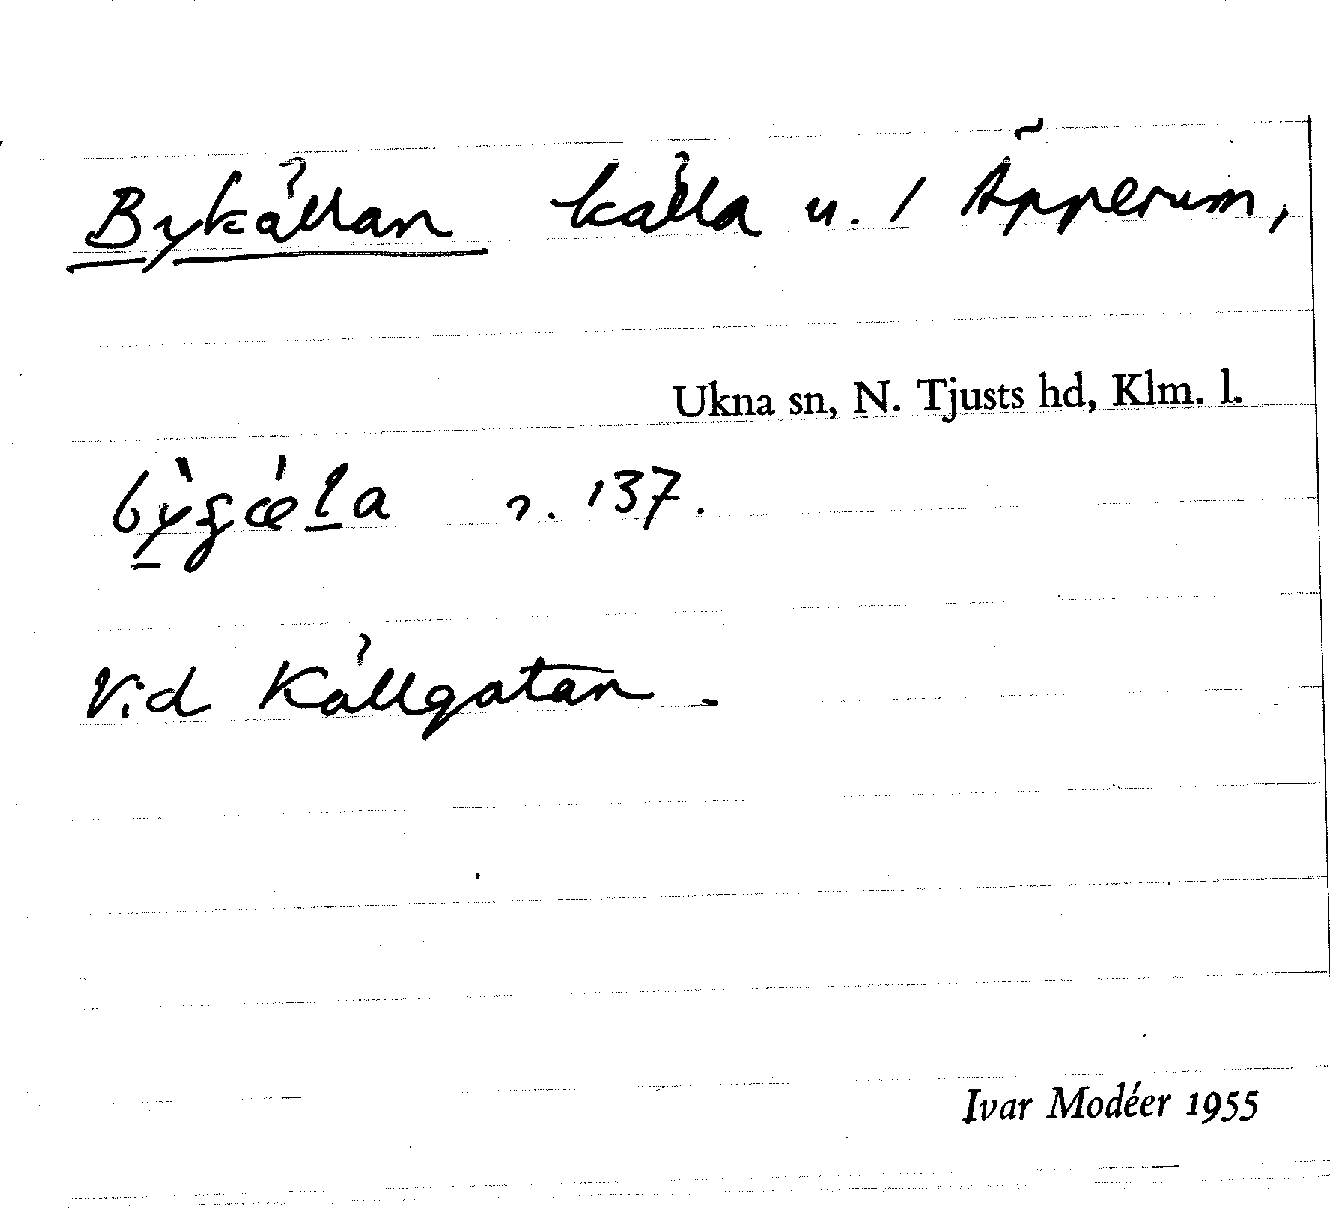 Bykällan källa u. 1 Äpperum,
Ukna sn, N. Tjusts hd, Klm. l.
r. 137.
Vid Källgatan.
Ivar Modéer 1955